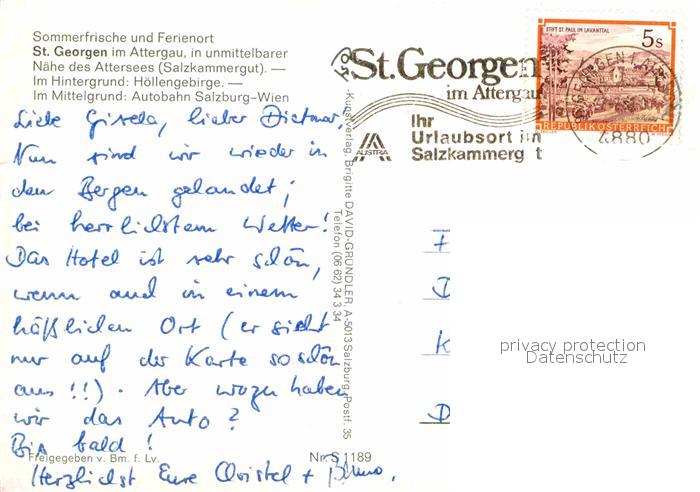 Sommerfrische und Ferienort
St. Georgen im Attergau, in unmittelbarer
Nähe des Attersees (Salzkammergut). —
Im Hintergrund: Höllengebirge. —
Im Mittelgrund: Autobahn Salzburg–Wien
Liebe Gisela, lieber Dietmar!
Nun sind wir wieder in
den Bergen gelandet;
bei herrlichstem Wetter!
Das Hotel ist sehr schön,
wenn auch in einem
häßlichen Ort (er sieht
nur auf der Karte so schön
aus!!). Aber wozu haben
wir das Auto?
Bis bald!
Herzlichst Eure Christel + Bruno.
Freigegeben v. Bm. f. Lv.
Nr. S 1189
Kunstverlag, Brigitte DAVID-GRÜNDLER, A-5013 Salzburg, Postf. 35
Telefon (06 62) 34 3 34
St. Georgen
im Attergau
Ihr
Urlaubsort im
Salzkammerg t
AUSTRIA
STIFT ST. PAUL IM LAVANTTAL
5s
REPUBLIK ÖSTERREICH
4880
F
D
K
D
privacy protection
Datenschutz